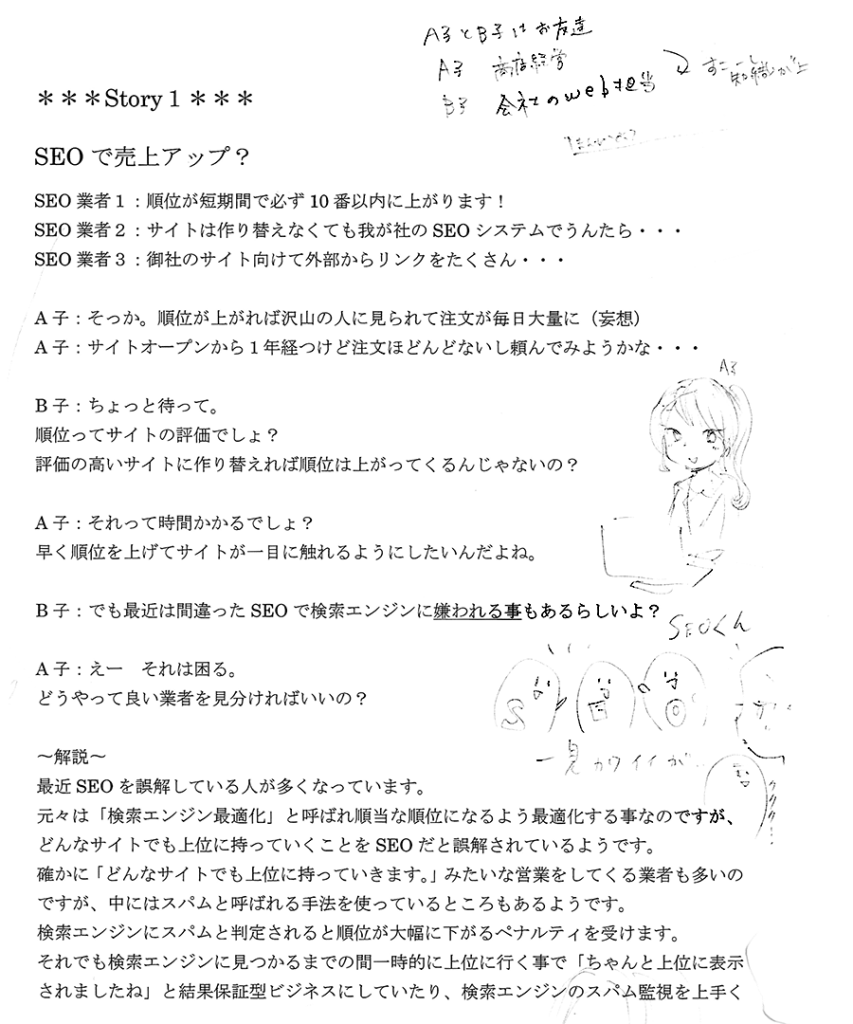 A子とB子はお友達
A子 商店経営
B子 会社のweb担当
すこーし
知識が上
＊＊＊Story 1 ＊＊＊
SEO で売上アップ？
SEO 業者１：順位が短期間で必ず 10 番以内に上がります！
SEO 業者２：サイトは作り替えなくても我が社の SEO システムでうんたら・・・
SEO 業者３：御社のサイト向けて外部からリンクをたくさん・・・
A 子：そっか。順位が上がれば沢山の人に見られて注文が毎日大量に（妄想）
A 子：サイトオープンから 1 年経つけど注文ほどんどないし頼んでみようかな・・・
A子
B 子：ちょっと待って。
順位ってサイトの評価でしょ？
評価の高いサイトに作り替えれば順位は上がってくるんじゃないの？
A 子：それって時間かかるでしょ？
早く順位を上げてサイトが一目に触れるようにしたいんだよね。
B 子：でも最近は間違った SEO で検索エンジンに嫌われる事もあるらしいよ？
SEOくん
A 子：えー　それは困る。
どうやって良い業者を見分ければいいの？
S E O
一見カワイイが..
ククク…
～解説～
最近 SEO を誤解している人が多くなっています。
元々は「検索エンジン最適化」と呼ばれ順当な順位になるよう最適化する事なのですが、
どんなサイトでも上位に持っていくことを SEO だと誤解されているようです。
確かに「どんなサイトでも上位に持っていきます。」みたいな営業をしてくる業者も多いの
ですが、中にはスパムと呼ばれる手法を使っているところもあるようです。
検索エンジンにスパムと判定されると順位が大幅に下がるペナルティを受けます。
それでも検索エンジンに見つかるまでの間一時的に上位に行く事で「ちゃんと上位に表示
されましたね」と結果保証型ビジネスにしていたり、検索エンジンのスパム監視を上手く